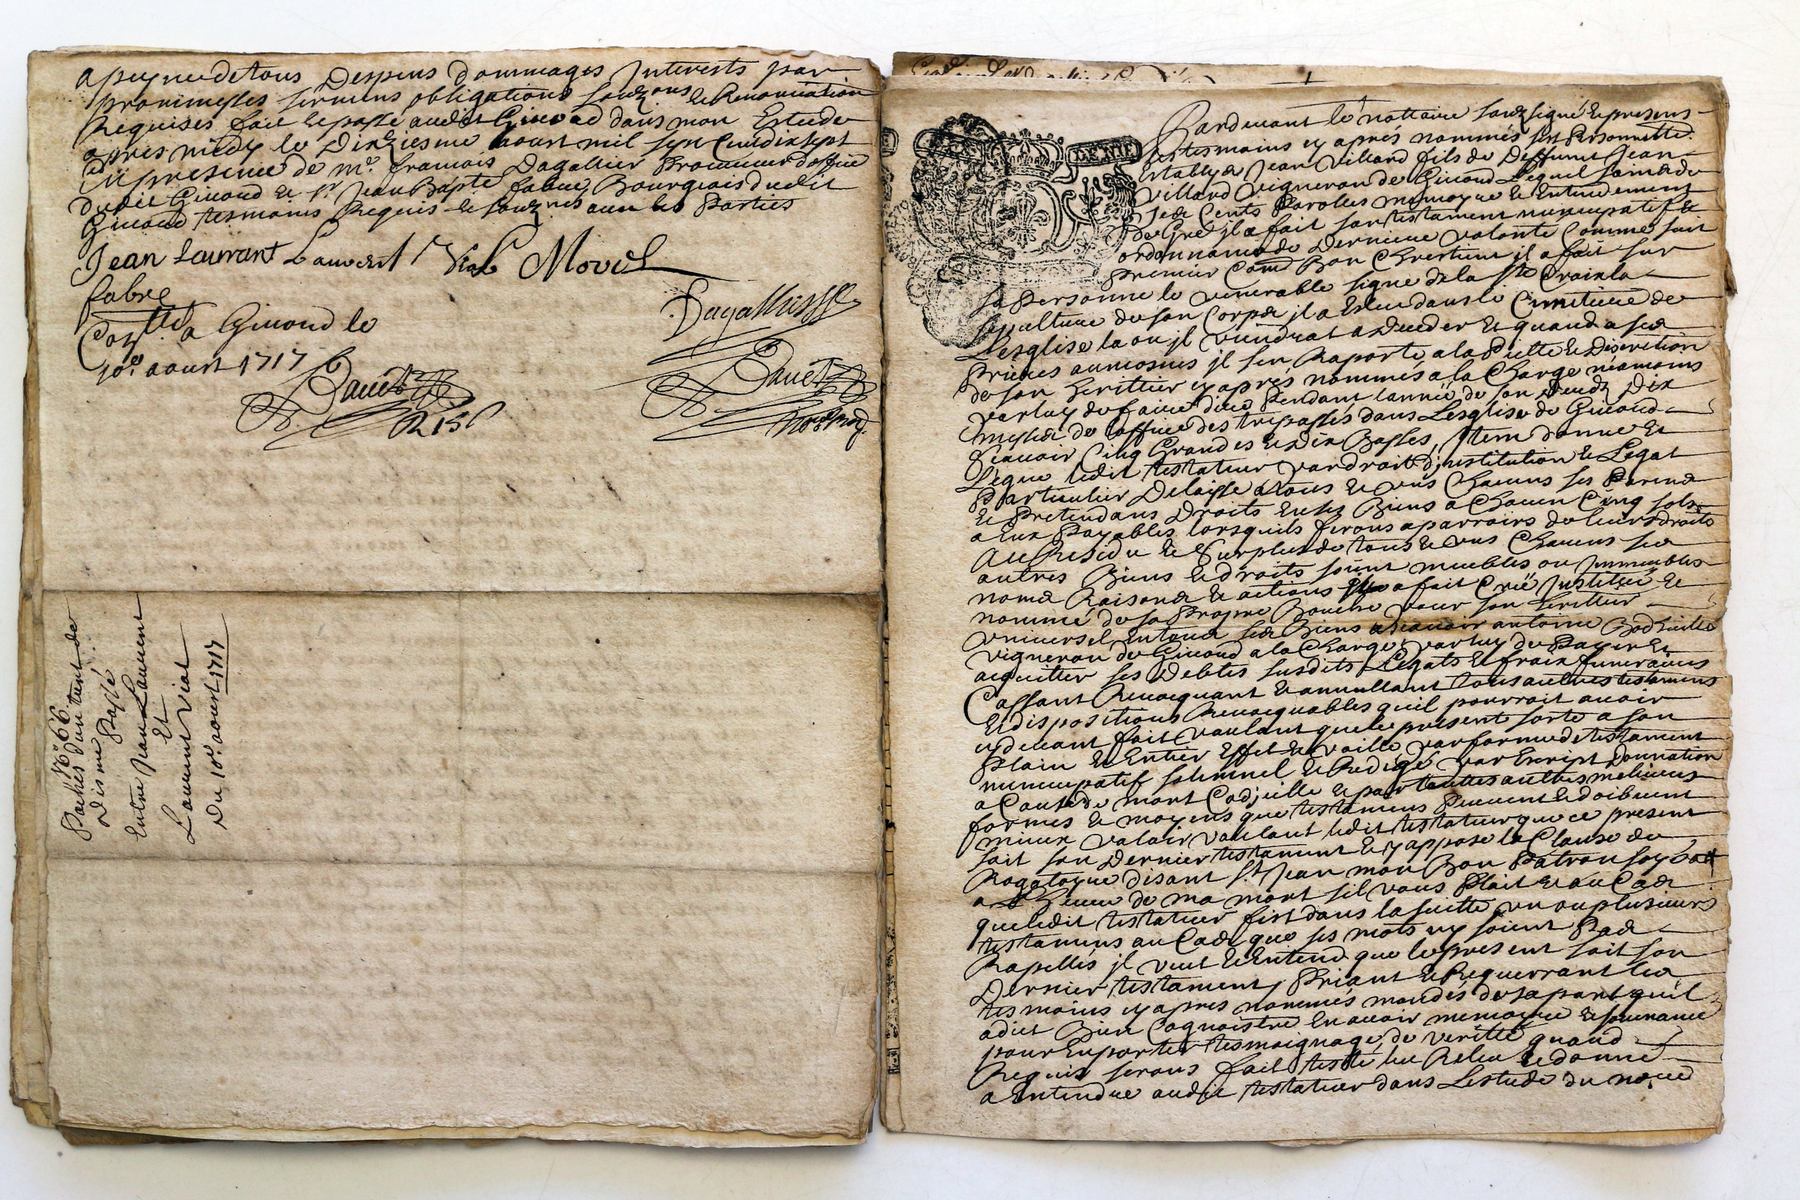 a peyne de tous Despens dommages Interests par
promimesses sermens obligations souz ons & Renonciation
Requises fait & passé audit Givord dans mon Estude
apres midy le Dixiesme aoust mil sept Cent dix sept
En presence de me. francois Dagallier Procureur
dudit Givord & sr Jean Bapte fabre Bourgeois dudit
Givord tesmoins Requis & souznes avec les Parties
Jean Laurant Laurent Vial Morel
fabre
Dagallier
Collé a Givord le
10e. aoust 1717
N° 66
Entre Jean Laurent
Et
Laurent Vial
Du 10e aoust 1717
Pardevant le nottaire souzsigné & presens
les tesmoins cy aprés nommés fut Personnelle
Estably Jean Villard fils de deffunt Jean
Villard vigneron de Givord Lequel
ses Cens Paroles memoyre & Entendement
de gré il a fait son testament nuncupatif &
ordonnance de Derniere volonté Comme suit
Premier Comē Bon Chrestien il a fait sur
sa Personne le venerable signe de la ste Croix la
sepulture de son Corps il a Esleu dans le Cimetiere de
Lesglise la ou il viendrat a deceder & quand a ses
Prieres aumosnes il sen Raporte a la & Discretion
de son heritier cy aprés nommés a la Charge neamoins
par luy de faire dire Pendant lannée de son decedz Dix
messes de loffice des trepassés dans Lesglise de Givord
Scavoir Cinq Grandes & dix Basses, Item donne &
Legue ledit testateur par droit d'institution & Legat
Particulier Delaisse a tous & uns Chacuns ses Parens
& Pretendans Droits en ses Biens a Chacun Cinq sols
a Eux Payables lorsquils ferons aparroirs de leurs droits
Au Residu & surplus de tous & uns Chacuns ses
autres Biens & droits soient meubles ou Immeubles
noms Raisons & actions a fait Crée Institué &
nommé de sa Propre Bouche pour son heritier
universel En tous ses Biens a scavoir antoine
vigneron de Givord a la Charge par luy de Payer &
acquitter ses Debtes susdits Legats & fraix funeraires
Cassant Revocquant & annullant tous autres testamens
& dispositions Revocquables quil pourroit avoir
cy devant fait voulant que le present sorte a son
Plain & Entier Effet & vaille par forme de testament
nuncupatif solemnel & Redigé par Escript Donnation
a Cause de mort Codicille & par touttes autres melieurs
formes & moyens que testamens Peuvent & doibvent
mieux valoir voulant ledit testateur que ce present
soit son Dernier testament & y appose la Clause de
Rogatoyre disant St Jean mon Bon Patron soyés
a Lheure de ma mort sil vous Plait & au Cas
que ledit testateur fist dans la suitte un ou plusieurs
testamens au Cas que ses mots ny soient Pas
Rapellés il veut & Entend que le present soit son
Dernier testament, Priant & Requerrant les
tesmoins cy apres nommés mandés de sa part quil
a dict Bien Cognoistre En avoir memoyre & souvenance
pour En porter tesmoignage de verité quand
Requis serons fait testé leu Releu & donné
a Entendre audit testateur dans Lestude du nore